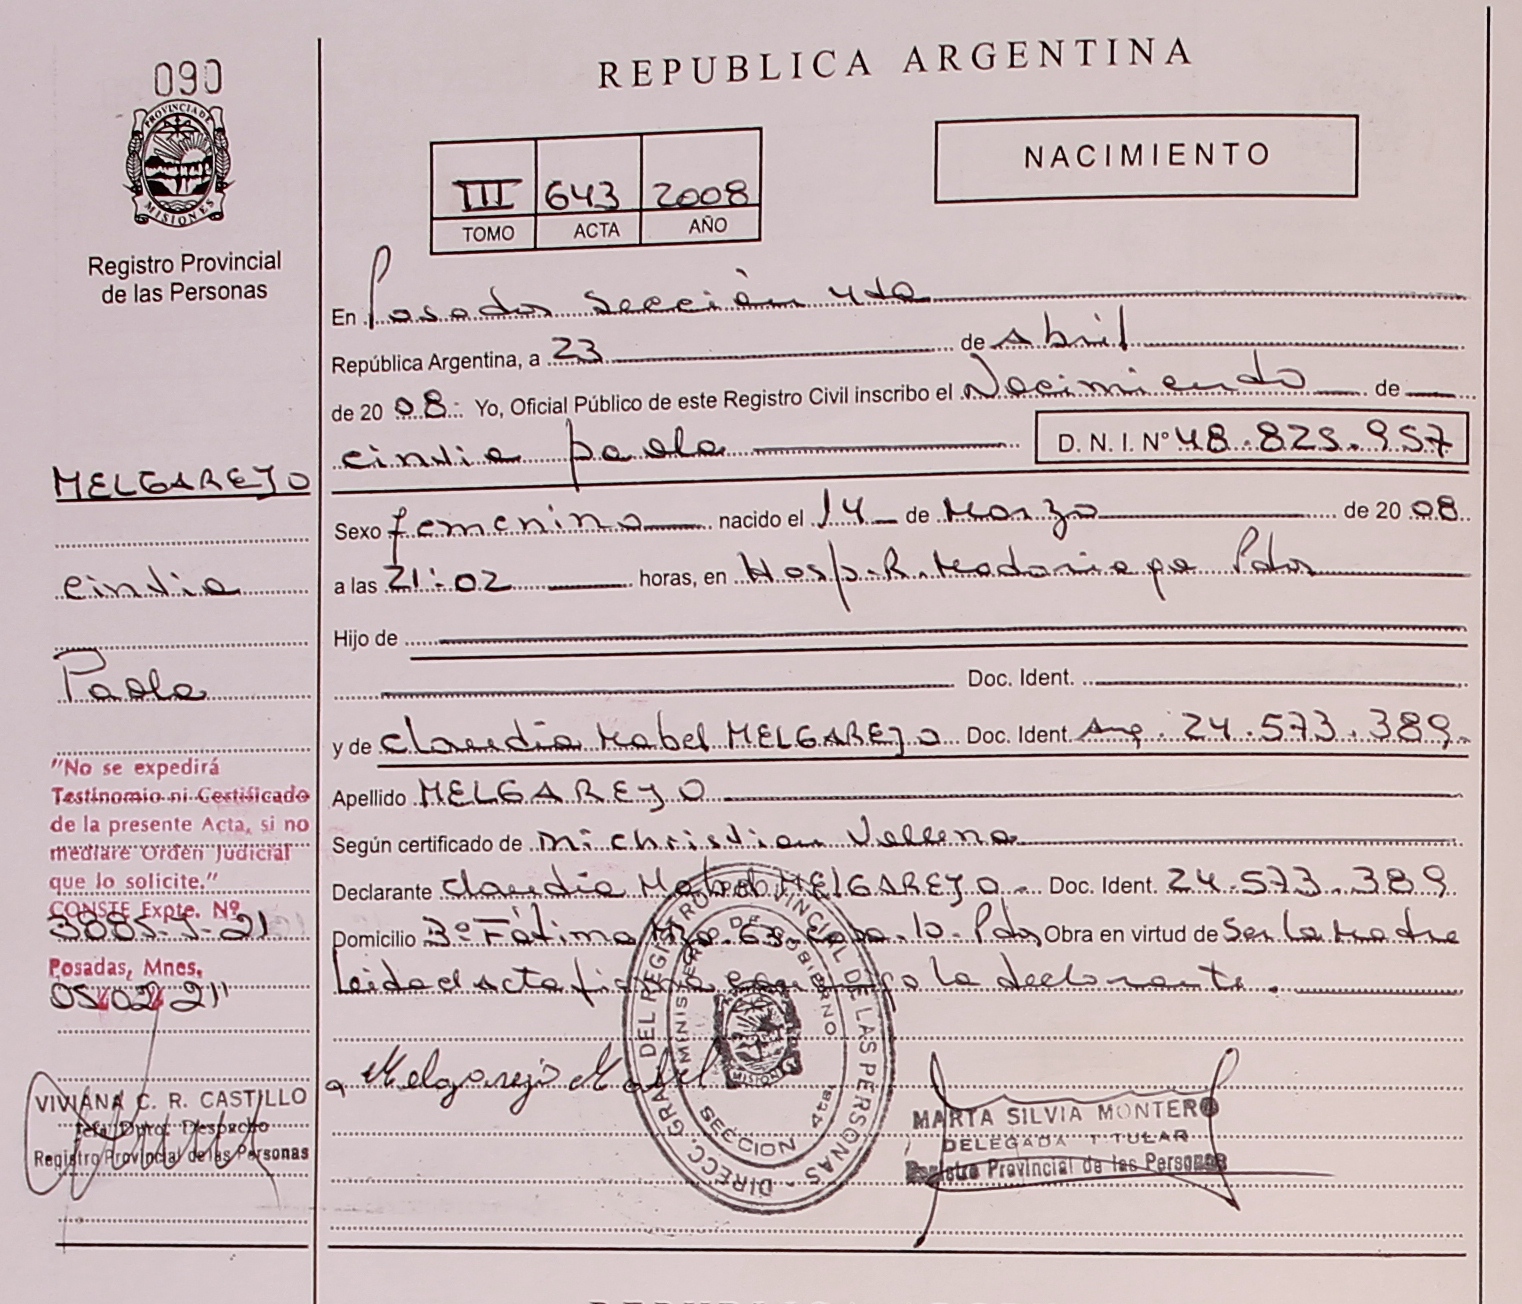 REPUBLICA ARGENTINA
090
PROVINCIA DE
MISIONES
Registro Provincial
de las Personas
NACIMIENTO
III 643 2008
TOMO ACTA AÑO
En Posadas Sección 4ta
República Argentina, a 23 de Abril
de 2008. Yo, Oficial Público de este Registro Civil inscribo el Nacimiento de
cintia paola D.N.I. Nº 48.825.957
MELGAREJO
cintia
Paola
"No se expedirá
Testinomio ni Certificado
de la presente Acta, si no
mediare Orden Judicial
que lo solicite."
CONSTE Expte. Nº
3005-J-21
Posadas, Mnes.
05 02 21
VIVIANA C. R. CASTILLO
Jefa Dpto. Despacho
Registro Provincial de las Personas
Sexo femenino nacido el 14 de Marzo de 2008
a las 21:02 horas, en Hosp. R. Madariaga Pdas
Hijo de
Doc. Ident.
y de claudia Mabel MELGAREJO Doc. Ident. Arg. 24.573.389
Apellido MELGAREJO
Según certificado de christian
Declarante claudia Mabel MELGAREJO Doc. Ident. 24.573.389
Domicilio 3º Fátima Mza. 63 casa 10 Pdas Obra en virtud de Ser la Madre
Leida el acta firma conmigo la declarante.
Melgarejo Mabel
DIRECC. GRAL. DEL REGISTRO PROVINCIAL DE LAS PERSONAS
MINISTERIO DE GOBIERNO
MISIONES
SECCION 4ta.
MARTA SILVIA MONTERO
DELEGADA TITULAR
Registro Provincial de las Personas